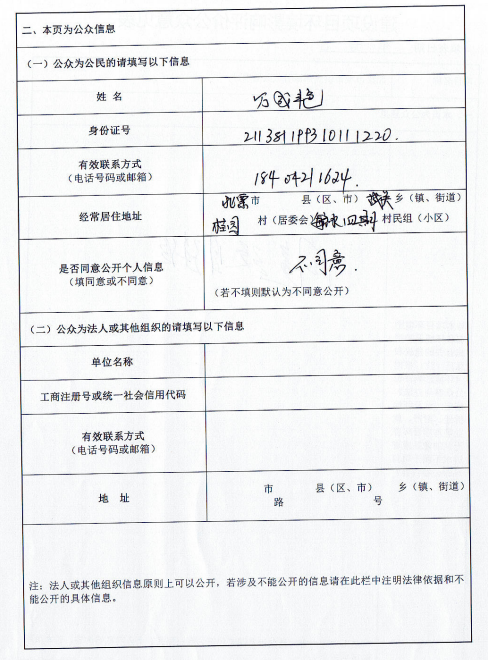 二、本页为公众信息
（一）公众为公民的请填写以下信息
姓 名
身份证号 211381199310111220.
有效联系方式
（电话号码或邮箱） 18404211624.
经常居住地址 北票市 县（区、市） 乡（镇、街道）
桂园 村（居委会） 村民组（小区）
是否同意公开个人信息
（填同意或不同意） 不同意.
（若不填则默认为不同意公开）
（二）公众为法人或其他组织的请填写以下信息
单位名称
工商注册号或统一社会信用代码
有效联系方式
（电话号码或邮箱）
地 址 市 县（区、市） 乡（镇、街道）
路 号
注：法人或其他组织信息原则上可以公开，若涉及不能公开的信息请在此栏中注明法律依据和不
能公开的具体信息。